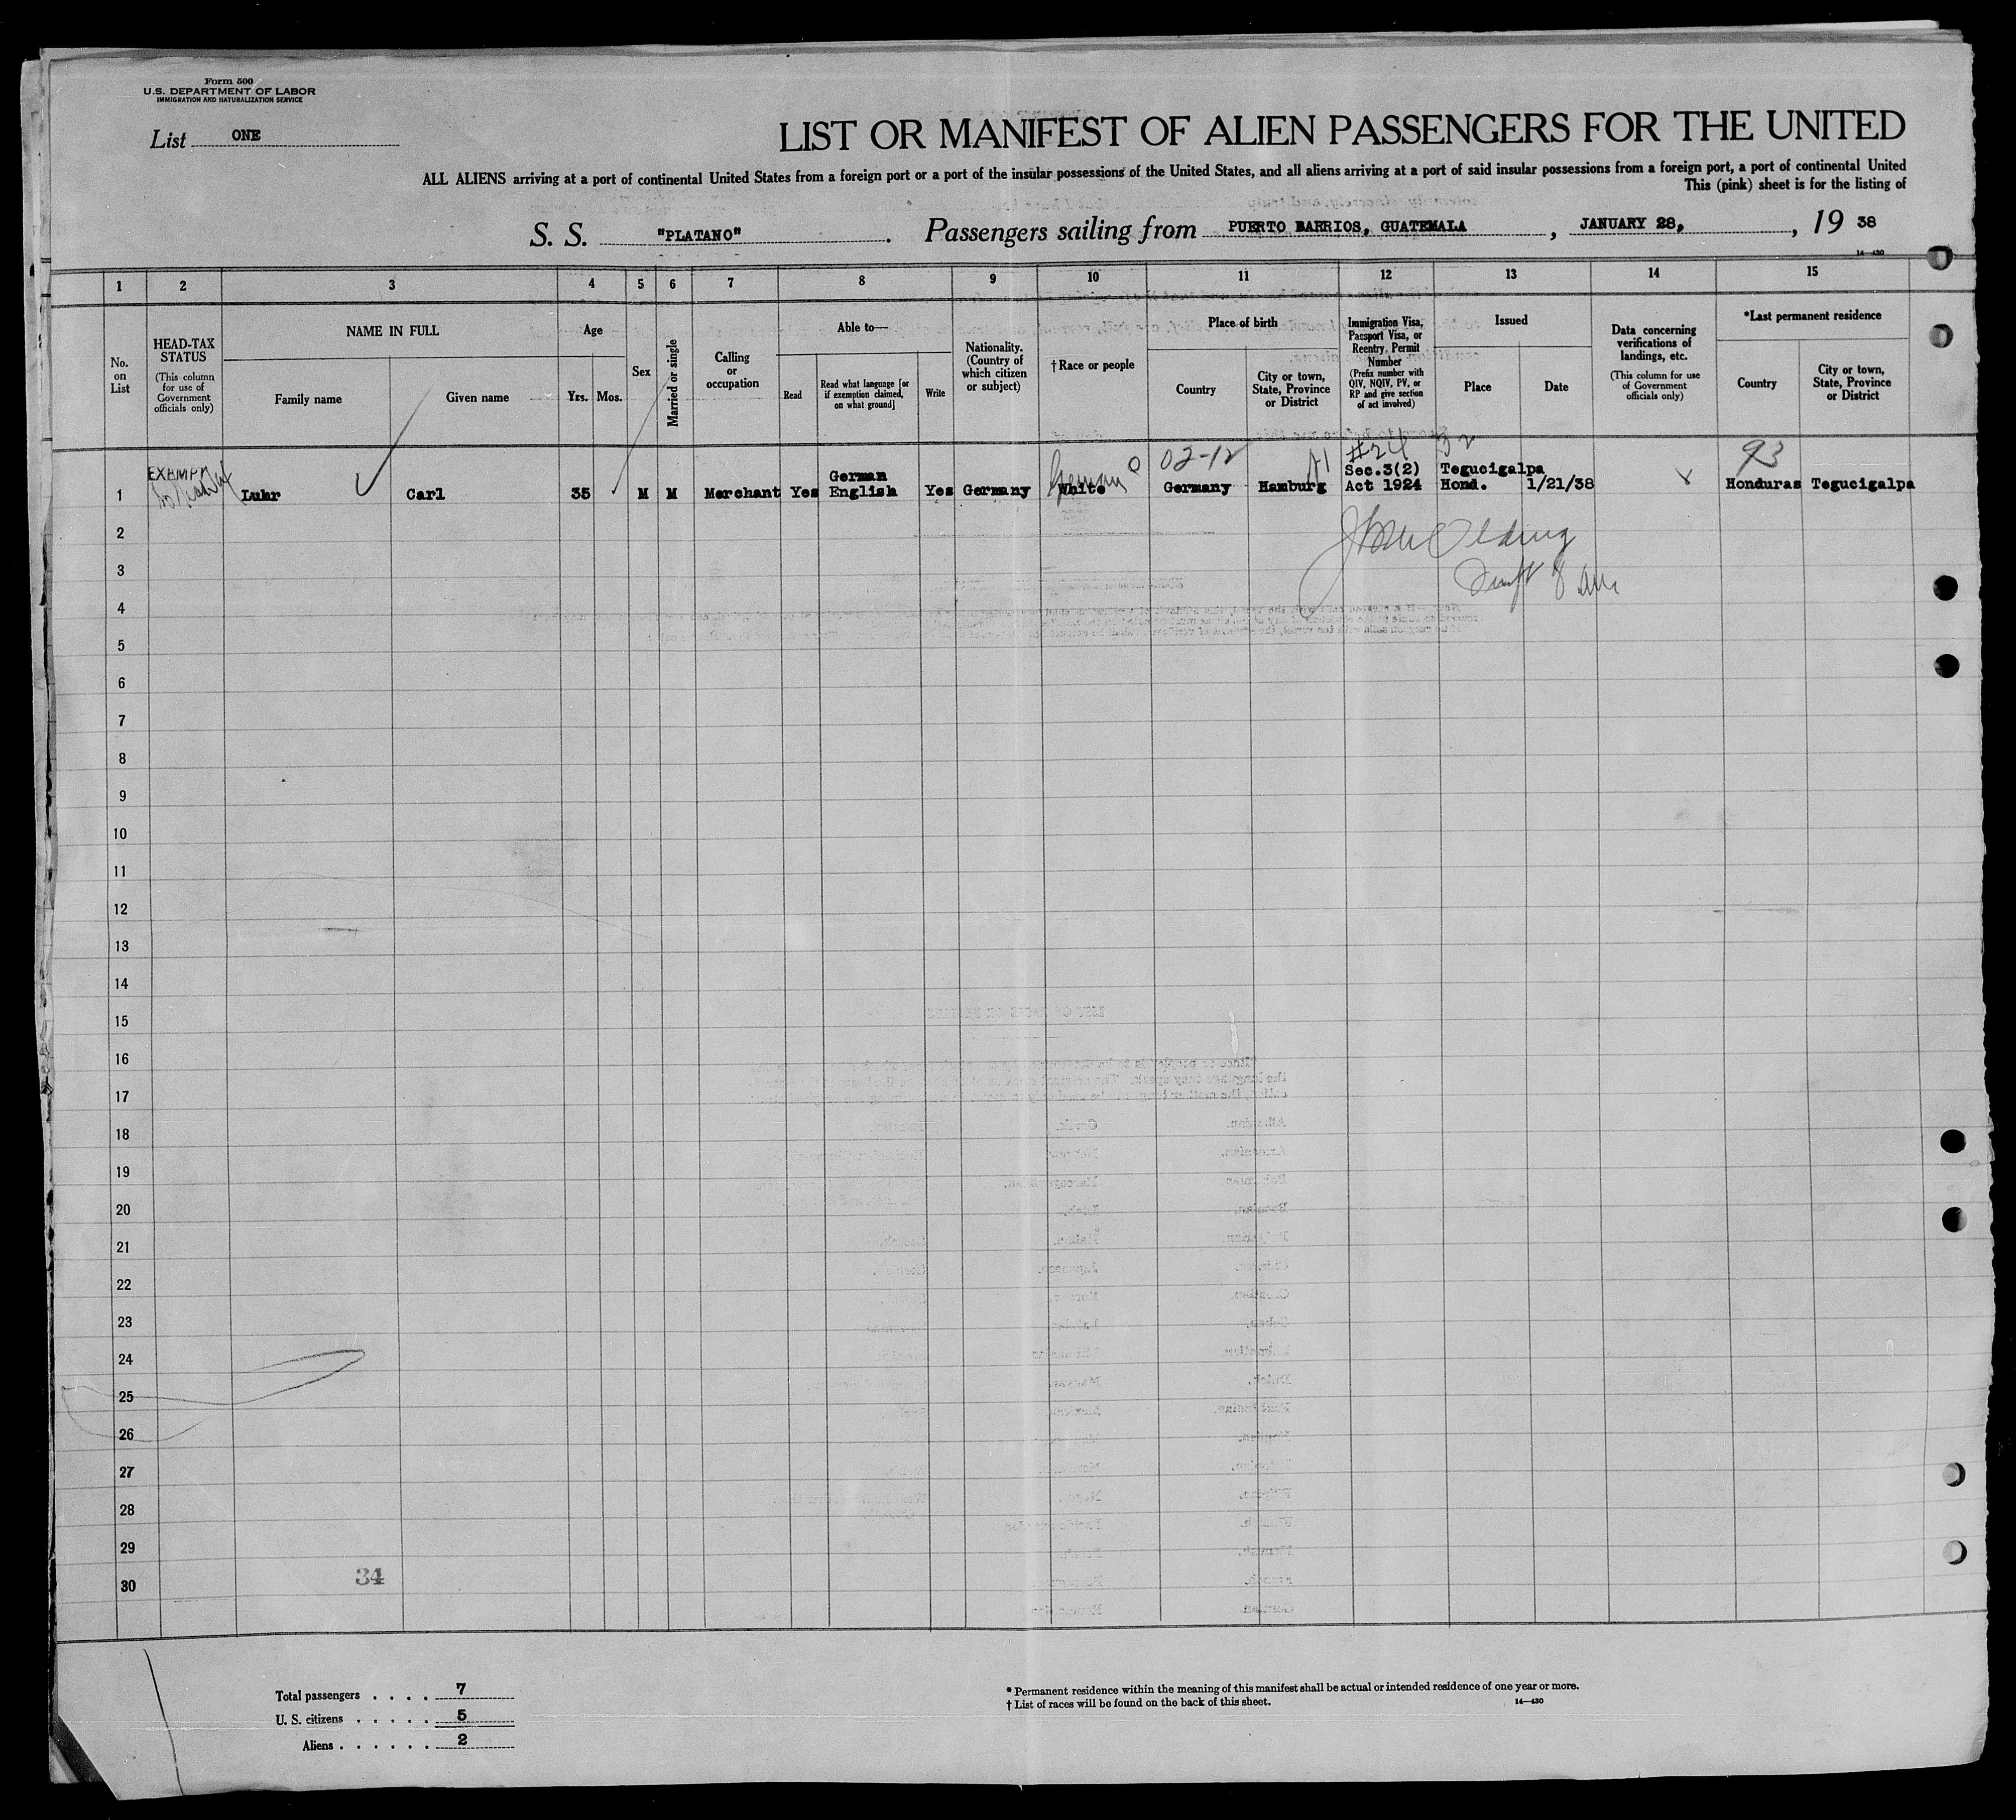 Form 500
U.S. DEPARTMENT OF LABOR
IMMIGRATION AND NATURALIZATION SERVICE
List ONE
LIST OR MANIFEST OF ALIEN PASSENGERS FOR THE UNITED
ALL ALIENS arriving at a port of continental United States from a foreign port or a port of the insular possessions of the United States, and all aliens arriving at a port of said insular possessions from a foreign port, a port of continental United
This (pink) sheet is for the listing of
S. S. "PLATANO". Passengers sailing from PUERTO BARRIOS, GUATEMALA, JANUARY 28,, 19 38
14—430
1 2 3 4 5 6 7 8 9 10 11 12 13 14 15
No. on List
HEAD-TAX STATUS
(This column for use of Government officials only)
NAME IN FULL
Family name
Given name
Age
Yrs.
Mos.
Sex
Married or single
Calling or occupation
Able to—
Read
Read what language [or if exemption claimed, on what ground]
Write
Nationality. (Country of which citizen or subject)
†Race or people
Place of birth
Country
City or town, State, Province or District
Immigration Visa, Passport Visa, or Reentry Permit Number
(Prefix number with QIV, NQIV, PV, or RP and give section of act involved)
Issued
Place
Date
Data concerning verifications of landings, etc.
(This column for use of Government officials only)
*Last permanent residence
Country
City or town, State, Province or District
02-12 #24 32 93
EXEMPT German A1 Sec.3(2) Tegucigalpa
1 Luhr Carl 35 M M Merchant Yes German English Yes Germany White Germany Hamburg Act 1924 Hond. 1/21/38 Honduras Tegucigalpa
2
3
4
5
6
7
8
9
10
11
12
13
14
15
16
17
18
19
20
21
22
23
24
25
26
27
28
29
30
34
Total passengers . . . . 7
U. S. citizens . . . . . 5
Aliens . . . . . . 2
* Permanent residence within the meaning of this manifest shall be actual or intended residence of one year or more.
† List of races will be found on the back of this sheet.
14—430